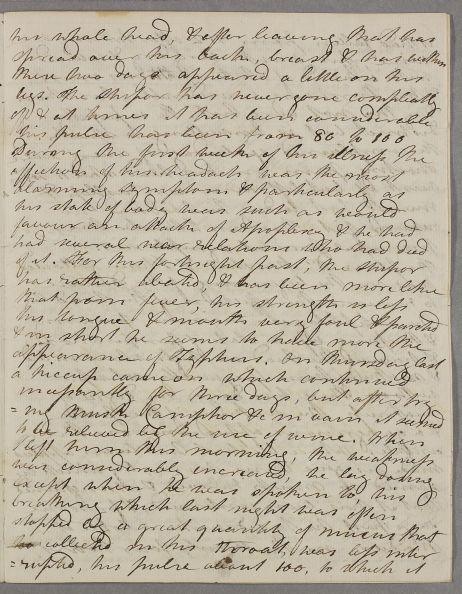 his whole head, & after leaving that has
spread over his back, breast & has within
these two days appeared a little on his
legs. The stupor has never gone completely
off & at times it has been considerable
his pulse has been from 80 to 100
During the first week of his illness the
affection of his headach was the most
alarming symptom & particularly as
his state of body was such as would
favour an attack of Apoplexy & he had
had several near relations who had died
of it. For this fortnight past, the stupor
has rather abated, & has been more like
that from fever, his strength is less
his tongue & mouth very foul & parched
& in short he seems to have more the
appearance of Typhus. On Thursday last
a hiccup came on which continued
incessantly for three days, but after try
=ing Musk Camphor &c in vain it seemed
to be relieved by the use of wine. When
I left him this morning, the weakness
was considerably increased, he lay dozing
except when he was spoken to, his
breathing which last night was often
stopped by a great quantity of mucus that
collected in his throat, was less inter
=rupted, his pulse about 100, to which it